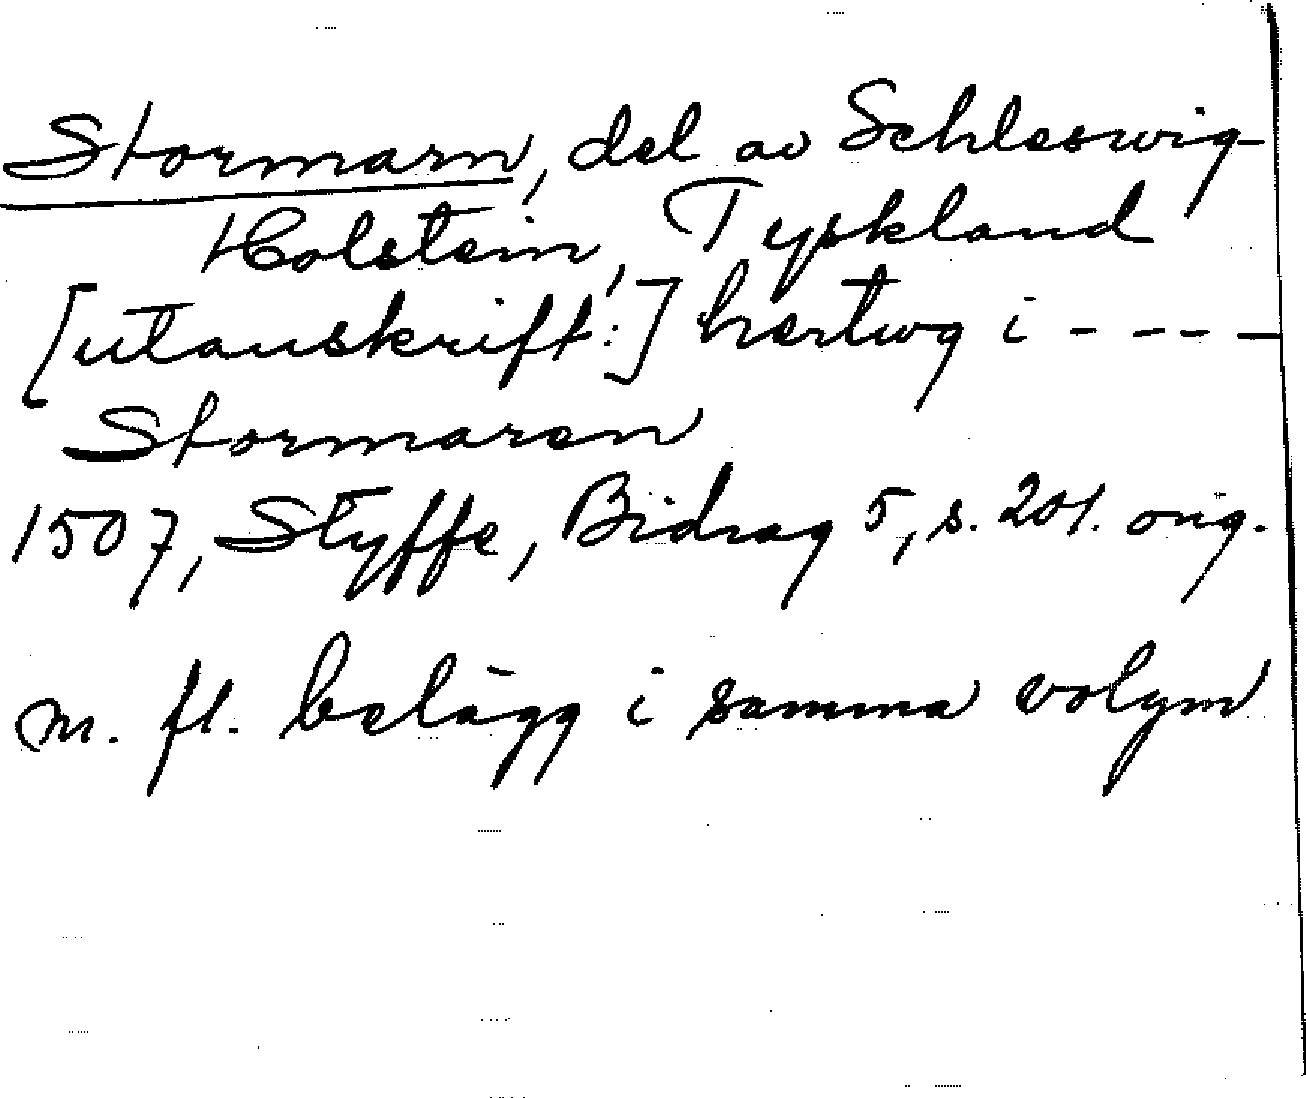 Stormarn, del av Schleswig-
Holstein, Tyskland
[utanskrift:] hertwg i - - - -
Stormaren
1507, Styffe, Bidrag 5, s. 201. orig.
m. fl. belägg i samma volym